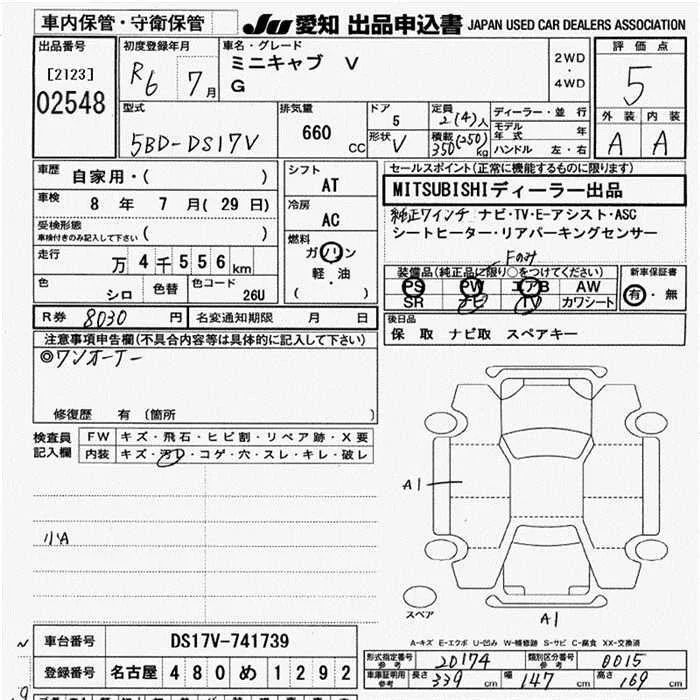 車内保管・守衛保管
JU 愛知 出品申込書 JAPAN USED CAR DEALERS ASSOCIATION
出品番号
[2123]
02548
初度登録年月
R6 7月
車名・グレード
ミニキャブ V
G
2WD
・
4WD
評価点
5
外装 内装
A A
型式
5BD-DS17V
排気量
660 CC
ドア
5
形状 V
定員
2(4)人
積載
350(250)kg
ディーラー・並行
モデル年式 年
ハンドル 左・右
車歴
自家用・( )
車検
8 年 7 月( 29 日)
受検形態
車検付きのみ記入して下さい ( )
走行
万 4 千 5 5 6 km
色
シロ
色替
色コード
26U
シフト
AT
冷房
AC
燃料
ガソリン
軽・油
( )
セールスポイント(正常に機能するものに限ります)
MITSUBISHIディーラー出品
純正7インチ ナビ・TV・E-アシスト・ASC
シートヒーター・リアパーキングセンサー
Fのみ
装備品(純正品に限り○をつけてください)
PS PW エアB AW
SR ナビ TV カワシート
新車保証書
有・無
R券 8030 円 名変通知期限 月 日
後日品
保 取 ナビ取 スペアキー
注意事項申告欄(不具合内容等は具体的に記入して下さい)
◎ワンオーナー
修復歴 有 (箇所 )
検査員
記入欄
FW キズ・飛石・ヒビ割・リペア跡・X要
内装 キズ・汚レ・コゲ・穴・スレ・キレ・破レ
小A
A1
スペア
A1
A-キズ E-エクボ U-凹み W-補修跡 S-サビ C-腐食 XX-交換済
車台番号 DS17V-741739
登録番号 名古屋 480 め 1292
形式指定番号
参考
20174
類別区分番号
参考
0015
車庫証明用
参考
長さ 339 cm 幅 147 cm 高さ 169 cm